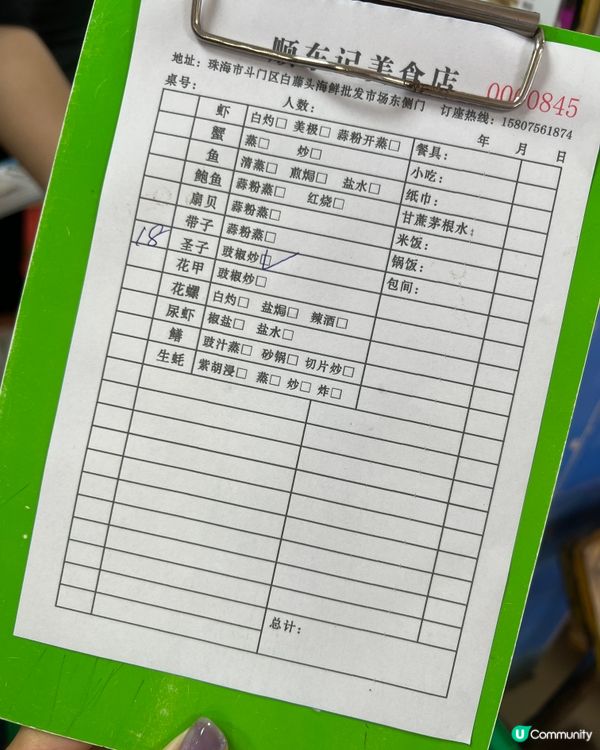 顺东记美食店
地址：珠海市斗门区白藤头海鲜批发市场东侧门 订座热线：15807561874
桌号： 人数： 年 月 日
虾 白灼□ 美极□ 蒜粉开蒸□ 餐具：
蟹 蒸□ 炒□ 小吃：
鱼 清蒸□ 煎焗□ 盐水□ 纸巾：
鲍鱼 蒜粉蒸□ 红烧□ 甘蔗茅根水：
扇贝 蒜粉蒸□ 米饭：
带子 蒜粉蒸□ 锅饭：
18 圣子 豉椒炒□ ✓ 包间：
花甲 豉椒炒□
花螺 白灼□ 盐焗□ 辣酒□
尿虾 椒盐□ 盐水□
鳝 豉汁蒸□ 砂锅□ 切片炒□
生蚝 紫胡浸□ 蒸□ 炒□ 炸□
总计：
U Community